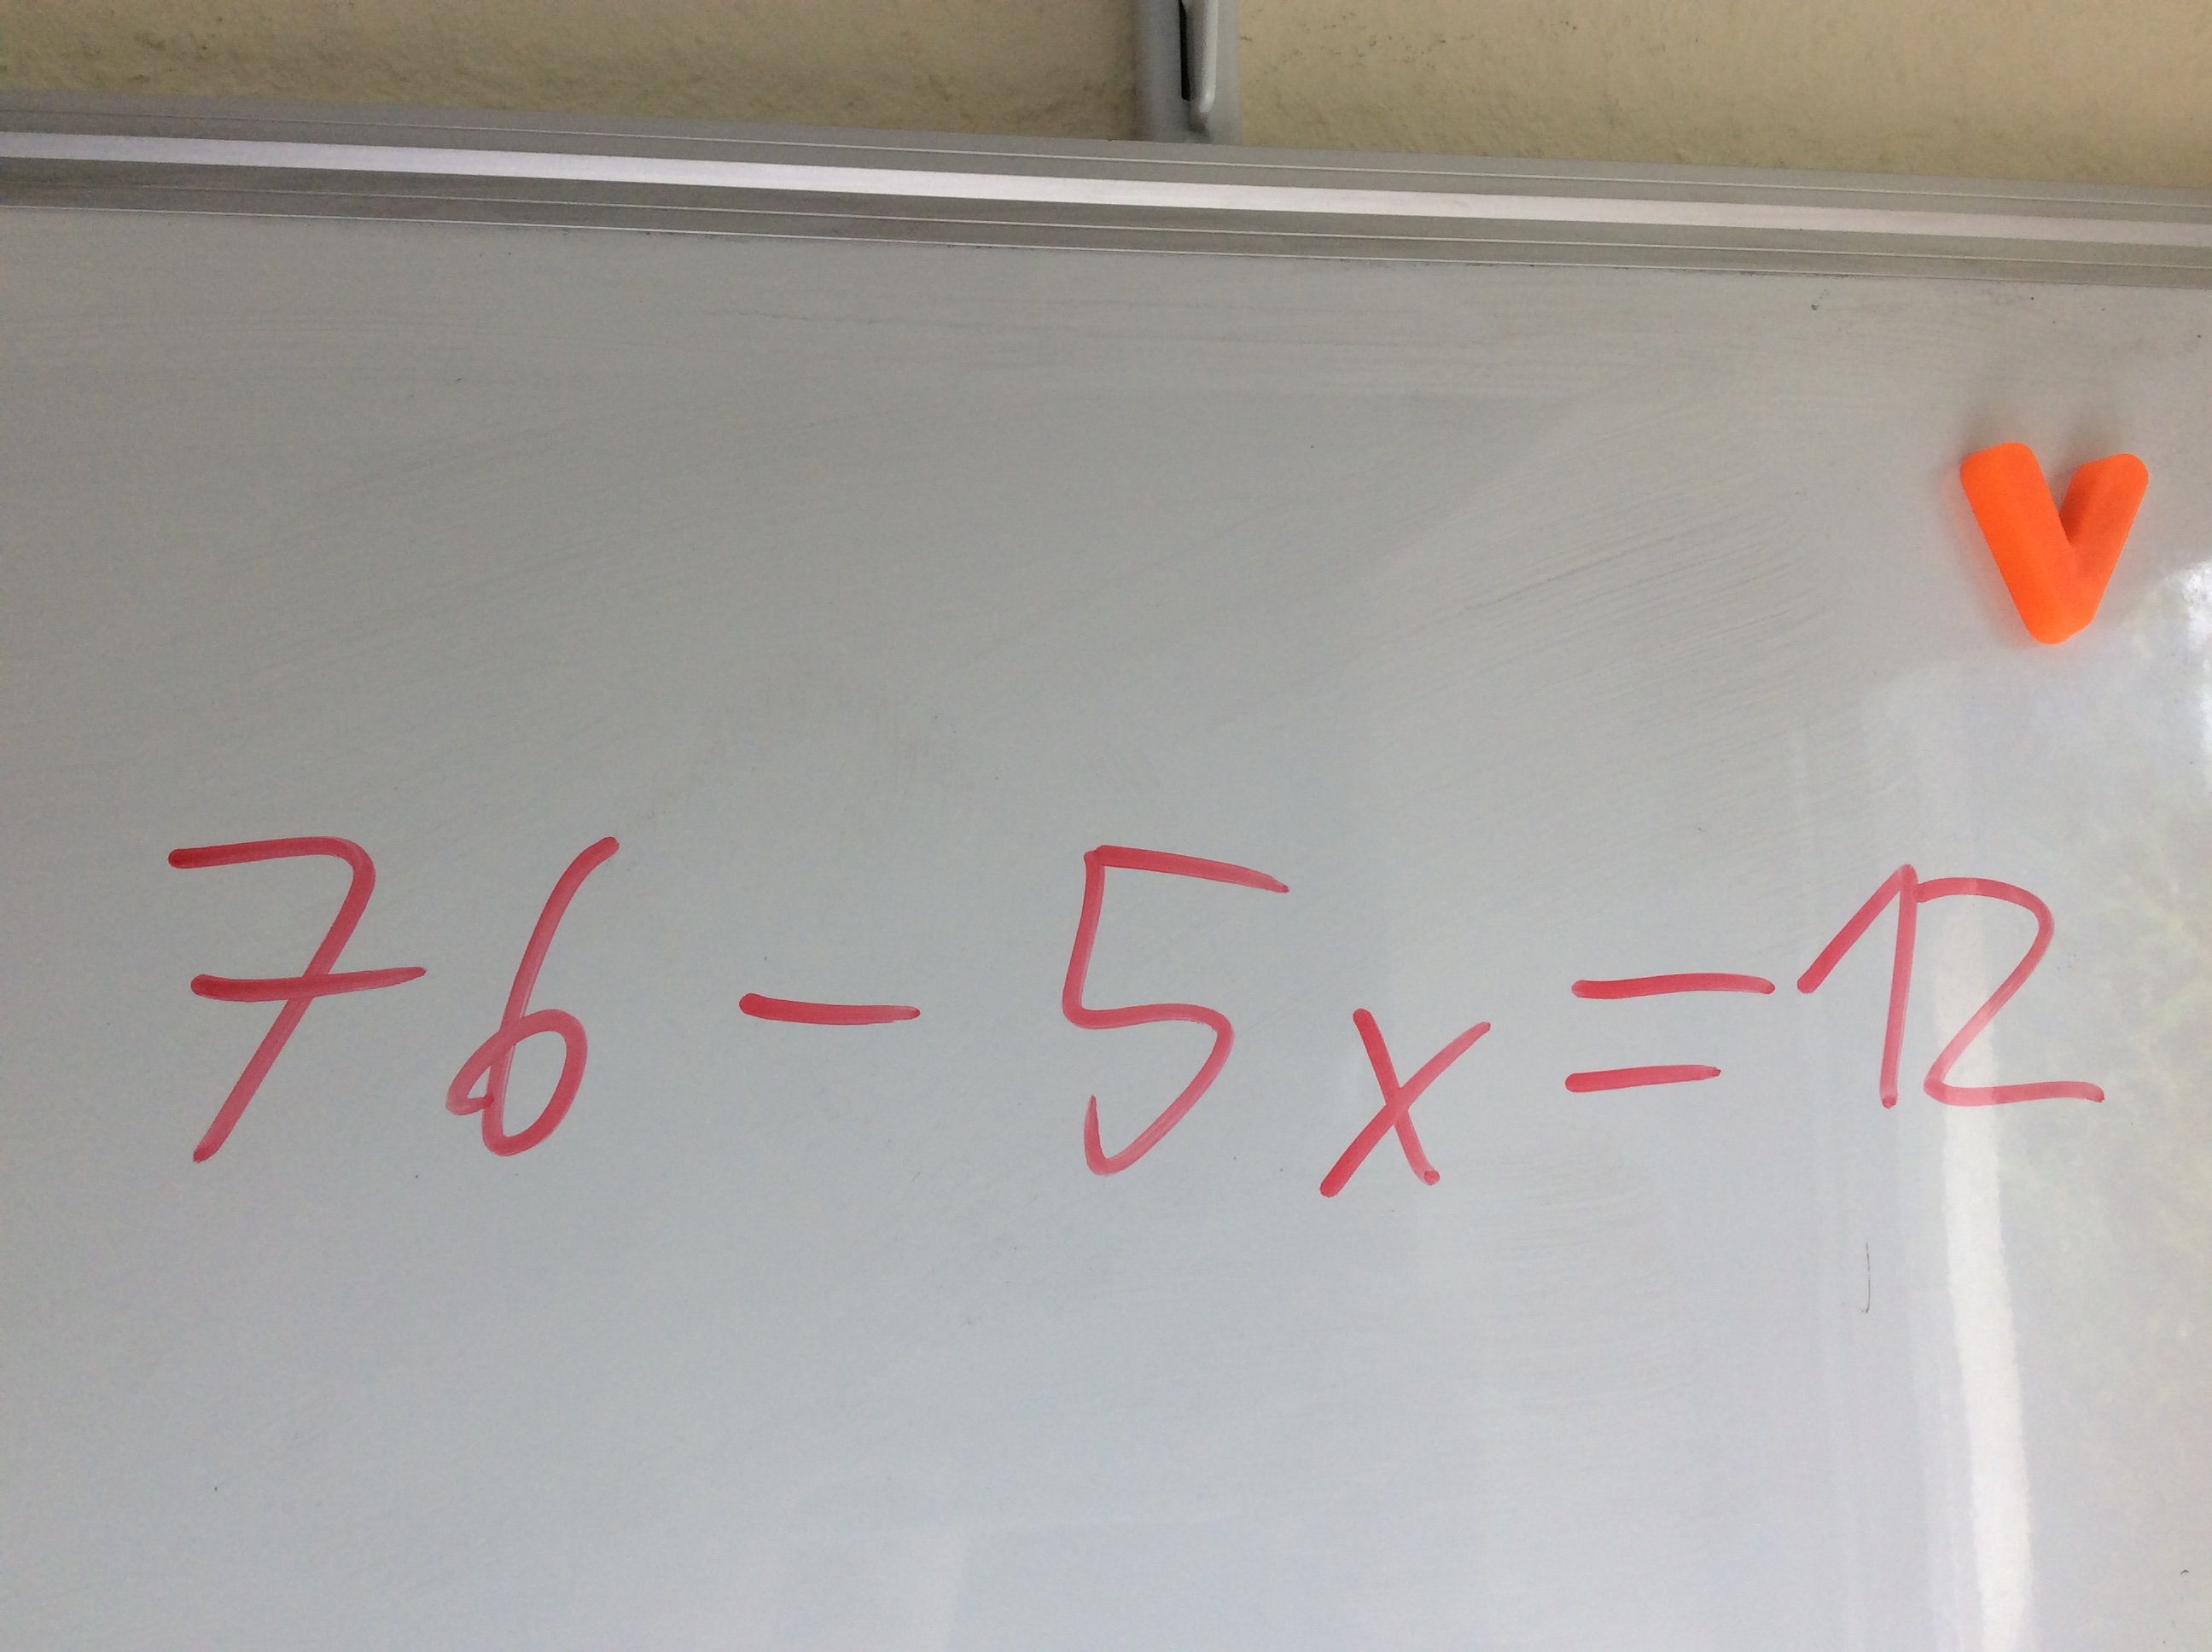 V
76 - 5x = 12